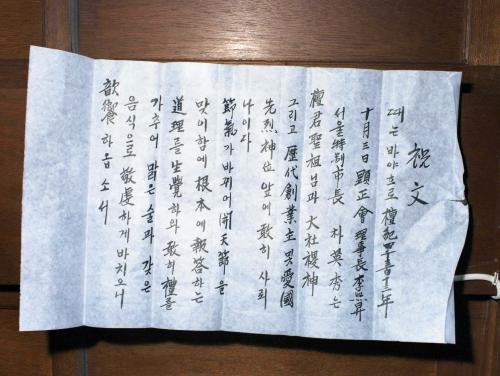 祝文
때는 바야흐로 檀紀 年
十月三日 顯正會 理事長 李熙昇
서울特別市長 朴英秀는
檀君聖祖님과 大社稷神
그리고 歷代創業主 및 愛國
先烈神位 앞에 敢히 사뢰
나이다
節氣가 바뀌어 開天節을
맞이함에 根本에 報答하는
道理를 生覺하와 敢히 禮를
가추어 맑은 술과 갖은
음식으로 敬虔하게 바치오니
歆饗하옵소서